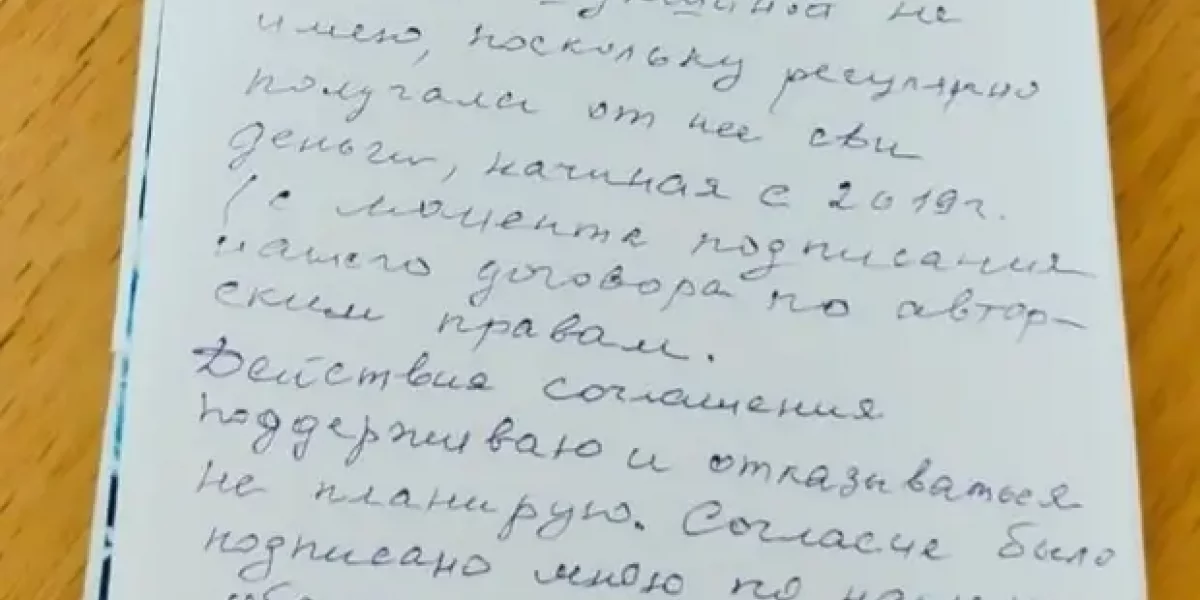 не
имею, поскольку регулярно
получала от нее сви
деньги, начиная с 2019г.
(с момента подписания
нашего договора по автор-
ским правам.
Действия соглашения
поддерживаю и отказываться
не планирую. Согласие было
подписано мною по